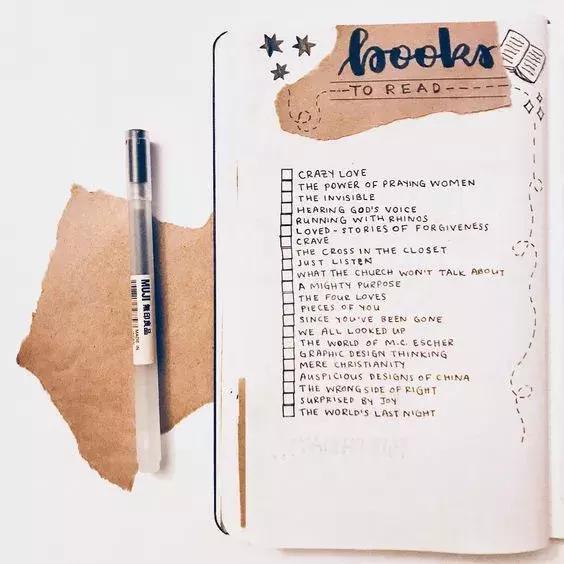 books
TO READ
CRAZY LOVE
THE POWER OF PRAYING WOMEN
THE INVISIBLE
HEARING GOD'S VOICE
RUNNING WITH RHINOS
LOVED - STORIES OF FORGIVENESS
CRAVE
THE CROSS IN THE CLOSET
JUST LISTEN
WHAT THE CHURCH WON'T TALK ABOUT
A MIGHTY PURPOSE
THE FOUR LOVES
PIECES OF YOU
SINCE YOU'VE BEEN GONE
WE ALL LOOKED UP
THE WORLD OF M.C. ESCHER
GRAPHIC DESIGN THINKING
MERE CHRISTIANITY
AUSPICIOUS DESIGNS OF CHINA
THE WRONG SIDE OF RIGHT
SURPRISED BY JOY
THE WORLD'S LAST NIGHT
MUJI 無印良品